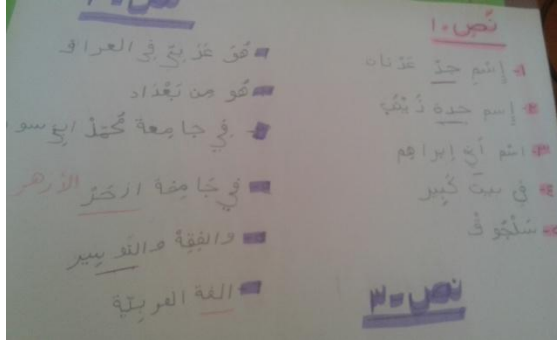 نص ١٠
١- إسم جد عدنان
٢- إسم جدة زينب
٣- اسم أبي إبراهيم
٤- في بيت كبير
٥- سلجوق
نص ٣٠
هو عربي في العراق
هو من بغداد
في جامعة محمد ابي سو
في جامعة ازحر الأزهر
والفقه والتوسير
الغة العربية